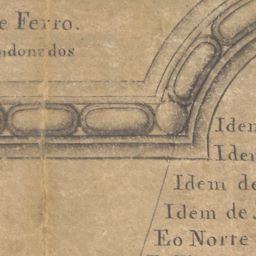 e Ferro.
ndonados
Idem
Idem
Idem de
Idem de
Eo Norte